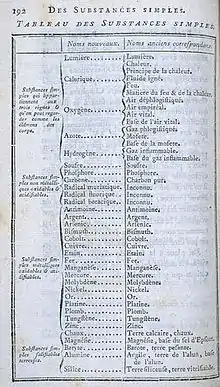 192 DES SUBSTANCES SIMPLES.
TABLEAU DES SUBSTANCES SIMPLES.
Noms nouveaux. Noms anciens correspondans.
Lumière Lumière.
Chaleur.
Principe de la chaleur.
Calorique Fluide igné.
Feu.
Matière du feu & de la chaleur.
Substances simples qui appartiennent aux trois règnes & qu'on peut regarder comme les élémens des corps.
Oxygène Air déphlogistiqué.
Air empiréal.
Air vital.
Base de l'air vital.
Azote Gaz phlogistiqué.
Mofete.
Base de la mofete.
Hydrogène Gaz inflammable.
Base du gaz inflammable.
Substances simples non métalliques oxidables & acidifiables.
Soufre Soufre.
Phosphore Phosphore.
Carbone Charbon pur.
Radical muriatique Inconnu.
Radical fluorique Inconnu.
Radical boracique Inconnu.
Substances simples métalliques oxidables & acidifiables.
Antimoine Antimoine.
Argent Argent.
Arsenic Arsenic.
Bismuth Bismuth.
Cobolt Cobolt.
Cuivre Cuivre.
Etain Etain.
Fer Fer.
Manganèse Manganèse.
Mercure Mercure.
Molybdène Molybdène.
Nickel Nickel.
Or Or.
Platine Platine.
Plomb Plomb.
Tungstène Tungstène.
Zinc Zinc.
Substances simples salifiables terreuses.
Chaux Terre calcaire, chaux.
Magnésie Magnésie, base du sel d'Epsom.
Baryte Barote, terre pesante.
Alumine Argile, terre de l'alun, base de l'alun.
Silice Terre siliceuse, terre vitrifiable.